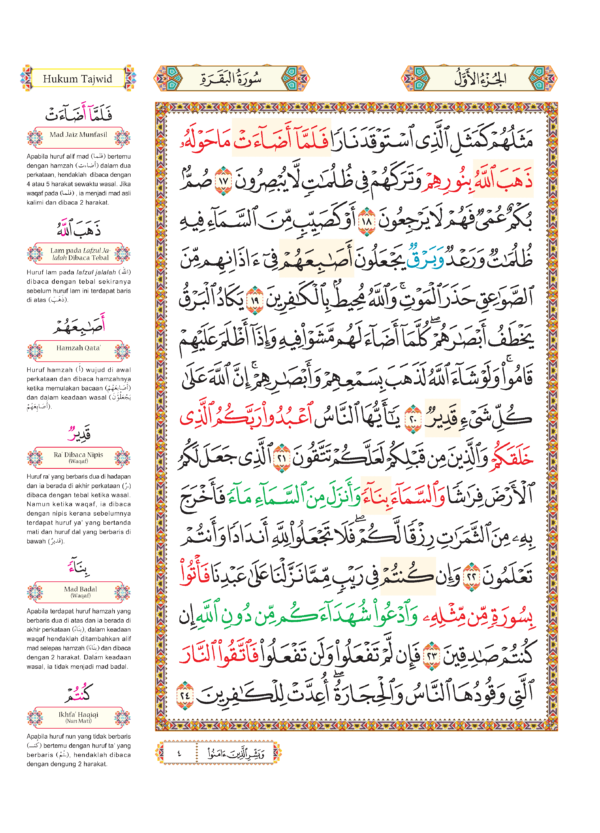 Hukum Tajwid
سُورَةُ الْبَقَرَةِ
الجُزْءُ الأَوَّلُ
فَلَمَّآ أَضَآءَتْ
Mad Jaiz Munfasil
Apabila huruf alif mad (فَلَمَّا) bertemu
dengan hamzah (أَضَاءَت) dalam dua
perkataan, hendaklah dibaca dengan
4 atau 5 harakat sewaktu wasal. Jika
waqaf pada (فَلَمَّا), ia menjadi mad asli
kalimi dan dibaca 2 harakat.
ذَهَبَ ٱللَّهُ
Lam pada Lafzul Ja-
lalah Dibaca Tebal
Huruf lam pada lafzul jalalah (الله)
dibaca dengan tebal sekiranya
sebelum huruf lam ini terdapat baris
di atas (ذَهَبَ).
أَصَٰبِعَهُمْ
Hamzah Qata'
Huruf hamzah (أ) wujud di awal
perkataan dan dibaca hamzahnya
ketika memulakan bacaan (أَصَابِعَهُمْ)
dan dalam keadaan wasal (يَجْعَلُوْنَ
أَصَابِعَهُمْ).
قَدِيرٌ
Ra' Dibaca Nipis
(Waqaf)
Huruf ra' yang berbaris dua di hadapan
dan ia berada di akhir perkataan (رٌ)
dibaca dengan tebal ketika wasal.
Namun ketika waqaf, ia dibaca
dengan nipis kerana sebelumnya
terdapat huruf ya' yang bertanda
mati dan huruf dal yang berbaris di
bawah (قَدِيرٌ).
بِنَآءً
Mad Badal
(Waqaf)
Apabila terdapat huruf hamzah yang
berbaris dua di atas dan ia berada di
akhir perkataan (بِنَاءً), dalam keadaan
waqaf hendaklah ditambahkan alif
mad selepas hamzah (بِنَاءَا) dan dibaca
dengan 2 harakat. Dalam keadaan
wasal, ia tidak menjadi mad badal.
كُنتُمْ
Ikhfa' Haqiqi
(Nun Mati)
Apabila huruf nun yang tidak berbaris
(كُنـ) bertemu dengan huruf ta' yang
berbaris (ـتُمْ), hendaklah dibaca
dengan dengung 2 harakat.
مَثَلُهُمْ كَمَثَلِ ٱلَّذِى ٱسْتَوْقَدَ نَارًا فَلَمَّآ أَضَآءَتْ مَا حَوْلَهُۥ
ذَهَبَ ٱللَّهُ بِنُورِهِمْ وَتَرَكَهُمْ فِى ظُلُمَٰتٍ لَّا يُبْصِرُونَ ١٧ صُمٌّۢ
بُكْمٌ عُمْىٌ فَهُمْ لَا يَرْجِعُونَ ١٨ أَوْ كَصَيِّبٍ مِّنَ ٱلسَّمَآءِ فِيهِ
ظُلُمَٰتٌ وَرَعْدٌ وَبَرْقٌ يَجْعَلُونَ أَصَٰبِعَهُمْ فِىٓ ءَاذَانِهِم مِّنَ
ٱلصَّوَٰعِقِ حَذَرَ ٱلْمَوْتِ ۚ وَٱللَّهُ مُحِيطٌۢ بِٱلْكَٰفِرِينَ ١٩ يَكَادُ ٱلْبَرْقُ
يَخْطَفُ أَبْصَٰرَهُمْ ۖ كُلَّمَآ أَضَآءَ لَهُم مَّشَوْا۟ فِيهِ وَإِذَآ أَظْلَمَ عَلَيْهِمْ
قَامُوا۟ ۚ وَلَوْ شَآءَ ٱللَّهُ لَذَهَبَ بِسَمْعِهِمْ وَأَبْصَٰرِهِمْ ۚ إِنَّ ٱللَّهَ عَلَىٰ
كُلِّ شَىْءٍ قَدِيرٌ ٢٠ يَٰٓأَيُّهَا ٱلنَّاسُ ٱعْبُدُوا۟ رَبَّكُمُ ٱلَّذِى
خَلَقَكُمْ وَٱلَّذِينَ مِن قَبْلِكُمْ لَعَلَّكُمْ تَتَّقُونَ ٢١ ٱلَّذِى جَعَلَ لَكُمُ
ٱلْأَرْضَ فِرَٰشًا وَٱلسَّمَآءَ بِنَآءً وَأَنزَلَ مِنَ ٱلسَّمَآءِ مَآءً فَأَخْرَجَ
بِهِۦ مِنَ ٱلثَّمَرَٰتِ رِزْقًا لَّكُمْ ۖ فَلَا تَجْعَلُوا۟ لِلَّهِ أَندَادًا وَأَنتُمْ
تَعْلَمُونَ ٢٢ وَإِن كُنتُمْ فِى رَيْبٍ مِّمَّا نَزَّلْنَا عَلَىٰ عَبْدِنَا فَأْتُوا۟
بِسُورَةٍ مِّن مِّثْلِهِۦ وَٱدْعُوا۟ شُهَدَآءَكُم مِّن دُونِ ٱللَّهِ إِن
كُنتُمْ صَٰدِقِينَ ٢٣ فَإِن لَّمْ تَفْعَلُوا۟ وَلَن تَفْعَلُوا۟ فَٱتَّقُوا۟ ٱلنَّارَ
ٱلَّتِى وَقُودُهَا ٱلنَّاسُ وَٱلْحِجَارَةُ ۖ أُعِدَّتْ لِلْكَٰفِرِينَ ٢٤
وَبَشِّرِ ٱلَّذِينَ ءَامَنُوا۟
٤